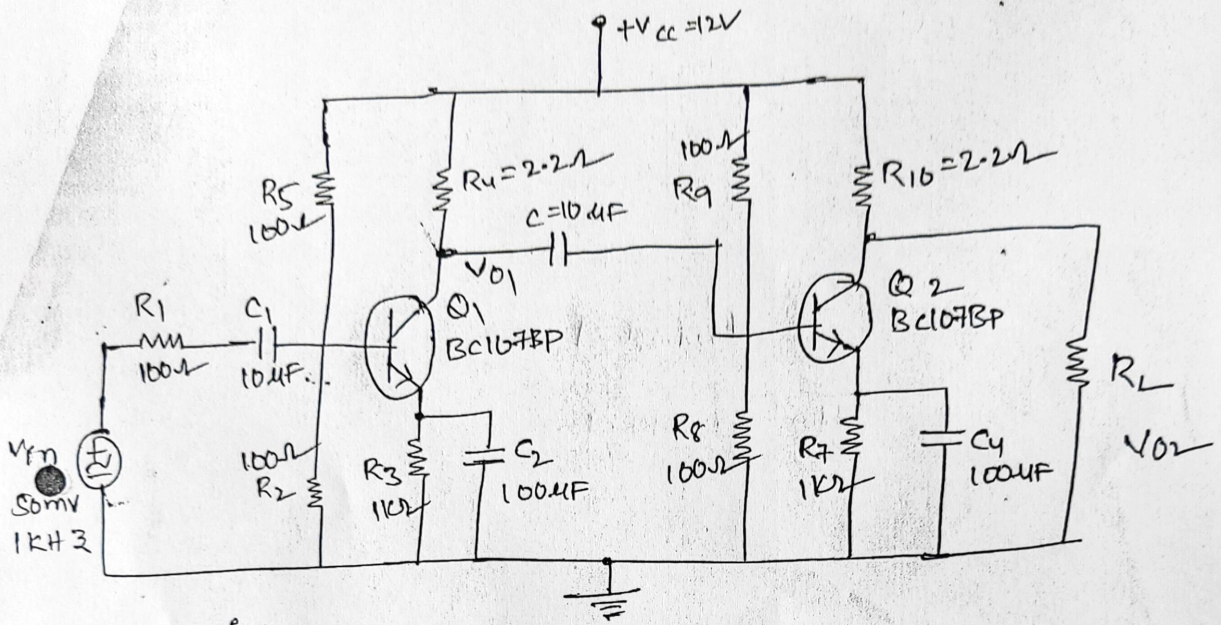 +Vcc=12V
R5
100Ω
R4=2.2Ω
C=10μF
100Ω
R9
R10=2.2Ω
V01
R1
100Ω
C1
10μF
Q1
BC107BP
Q2
BC107BP
RL
V02
Vin
50mV
1KHz
100Ω
R2
R3
1KΩ
C2
100μF
R8
100Ω
R7
1KΩ
C4
100μF